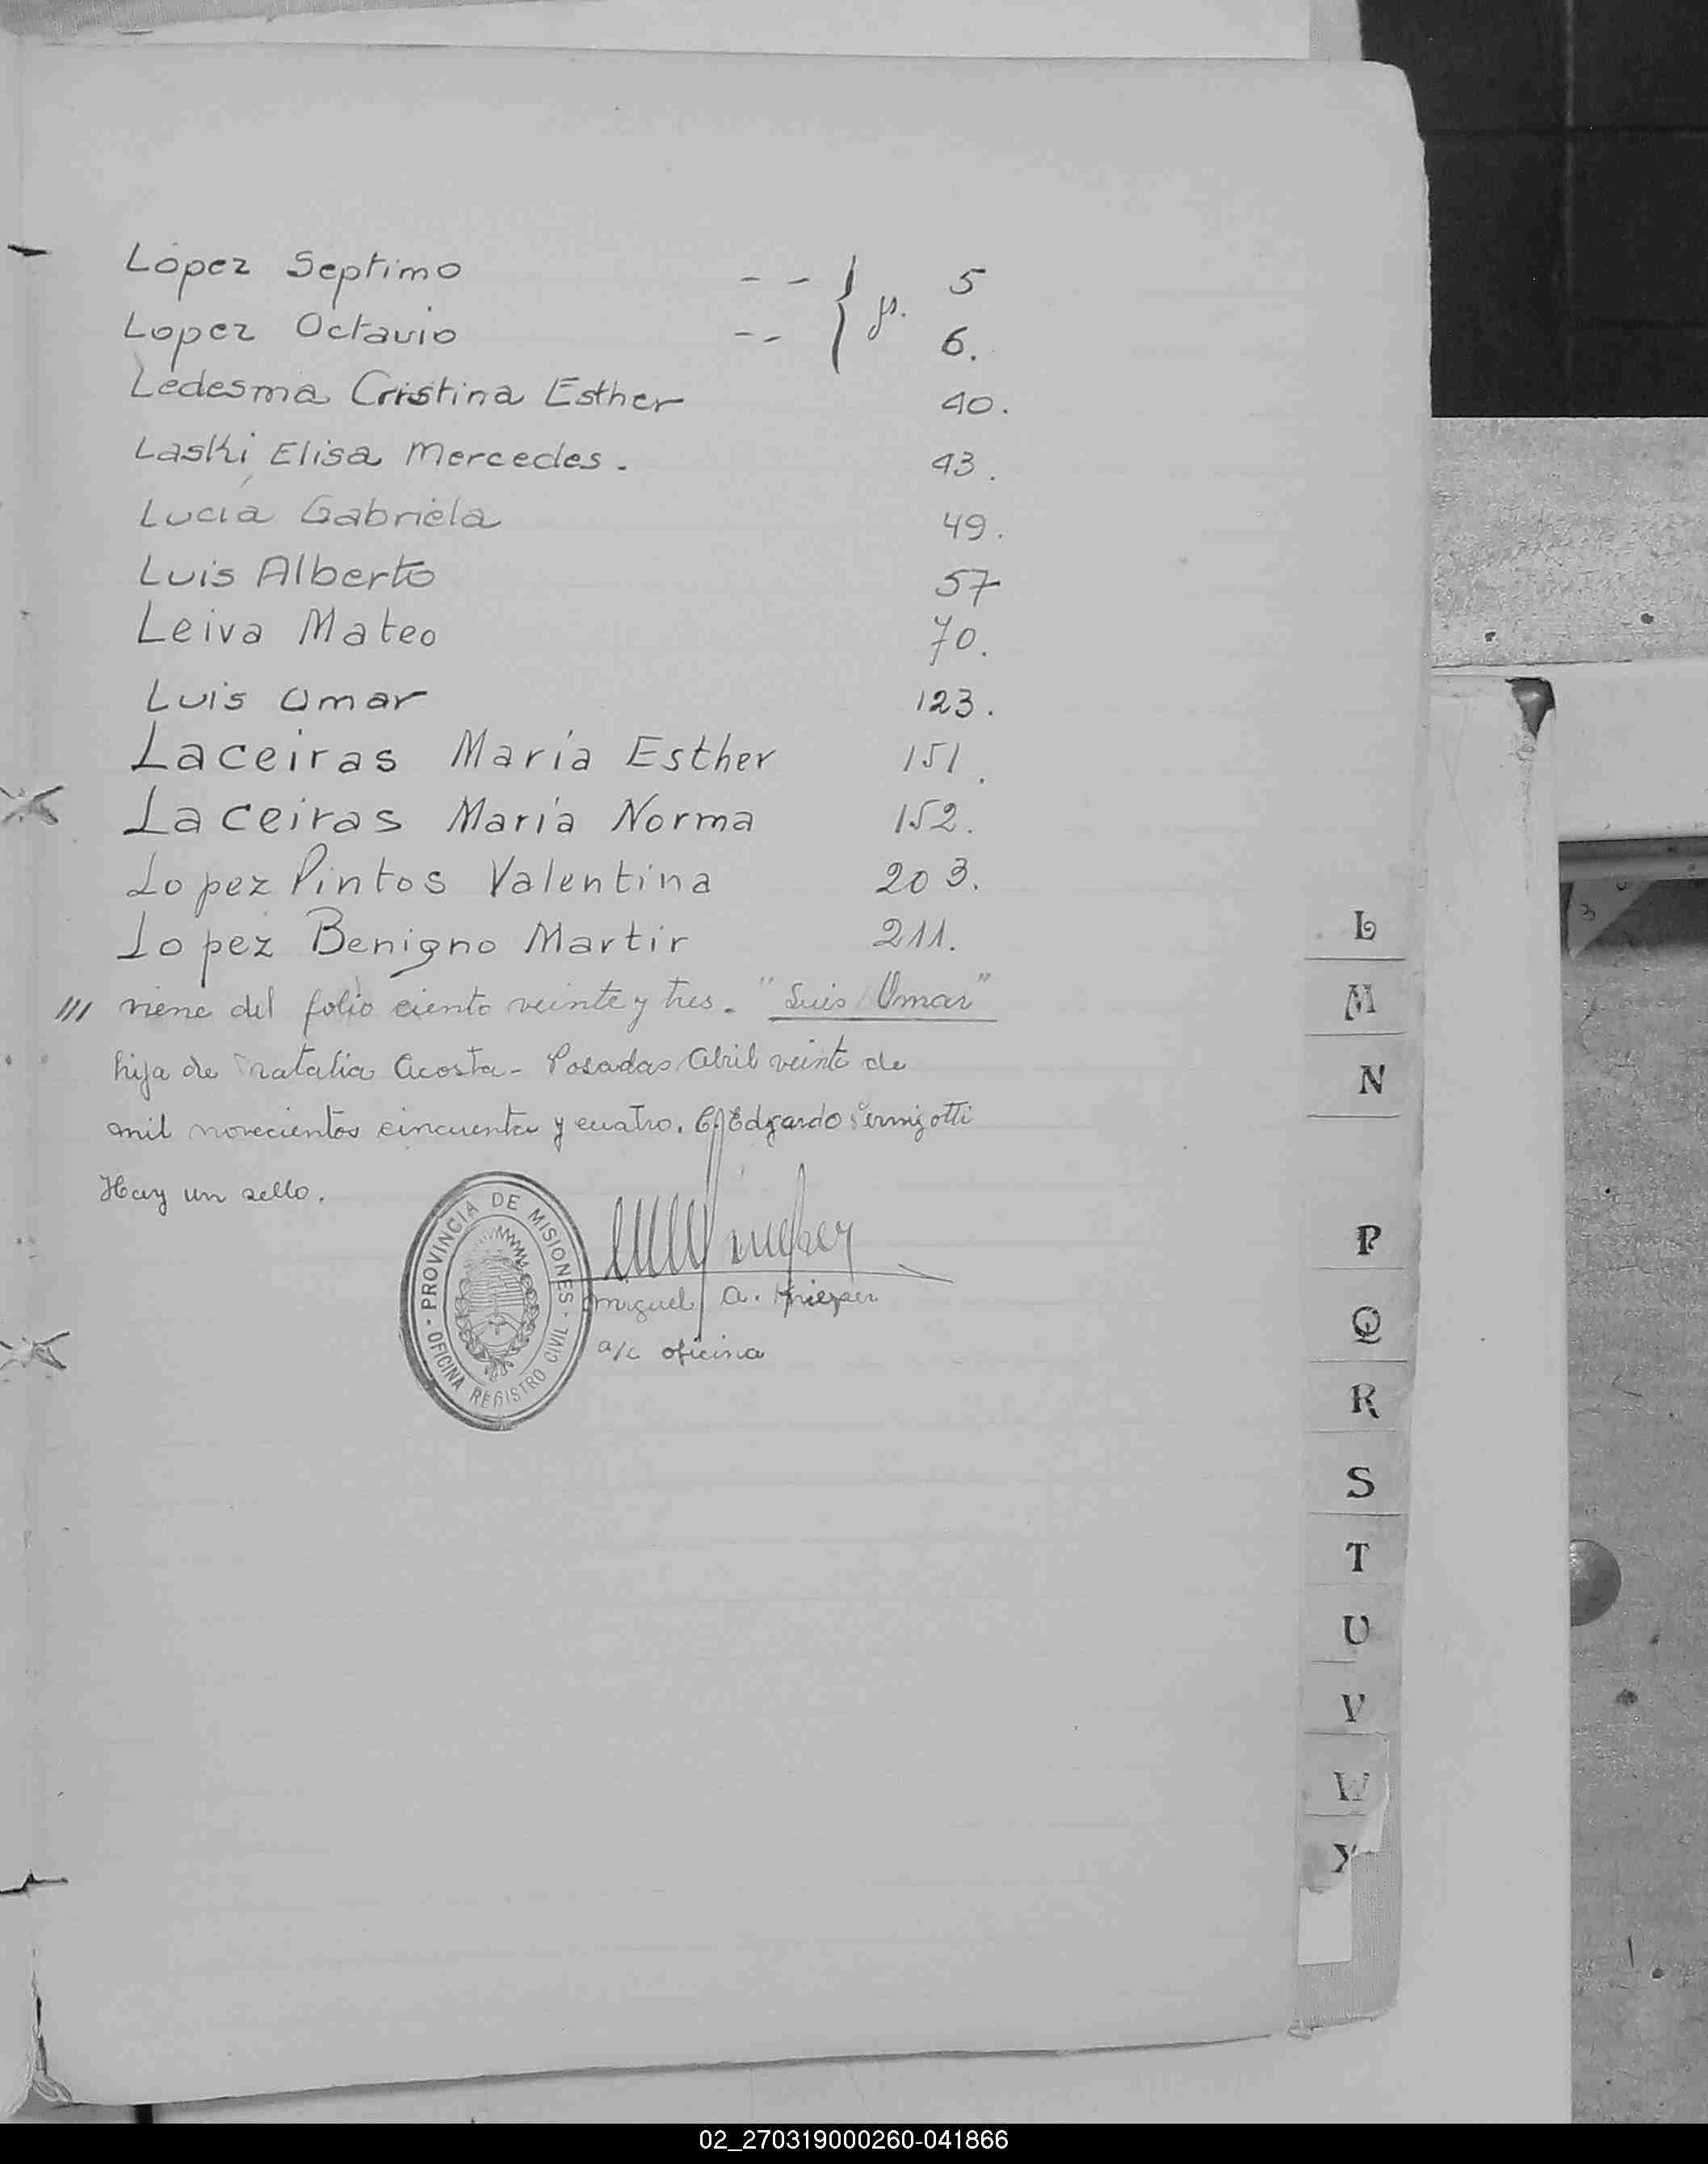 López Septimo -- { fs. 5
Lopez Octavio -- 6.
Ledesma Cristina Esther 40.
Laski Elisa Mercedes. 43.
Lucía Gabriela 49.
Luis Alberto 57
Leiva Mateo 70.
Luis Omar 123.
Laceiras María Esther 151.
Laceiras María Norma 152.
Lopez Pintos Valentina 203.
Lopez Benigno Martir 211.
/// viene del folio ciento veinte y tres. "Luis Omar"
hija de Natalia Acosta - Posadas Abril veinte de
mil novecientos cincuenta y cuatro. C. Edgardo
Hay un sello.
PROVINCIA DE MISIONES
OFICINA REGISTRO CIVIL
Miguel A. Knieper
a/c oficina
L
M
N
P
Q
R
S
T
U
V
W
3
02_270319000260-041866